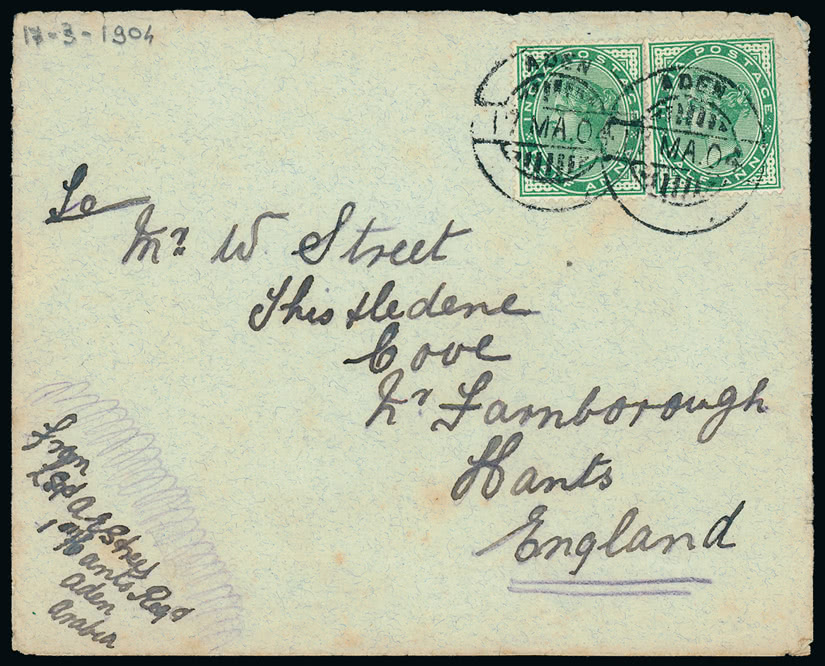 17-3-1904
POSTAGE
HALF ANNA
POSTAGE
HALF ANNA
ADEN
17 MA.04
ADEN
MA.04
To
Mr. W. Street
Thistledene
Cove
Nr Farnborough
Hants
England
From
1st Hants Regt
Aden
Arabia